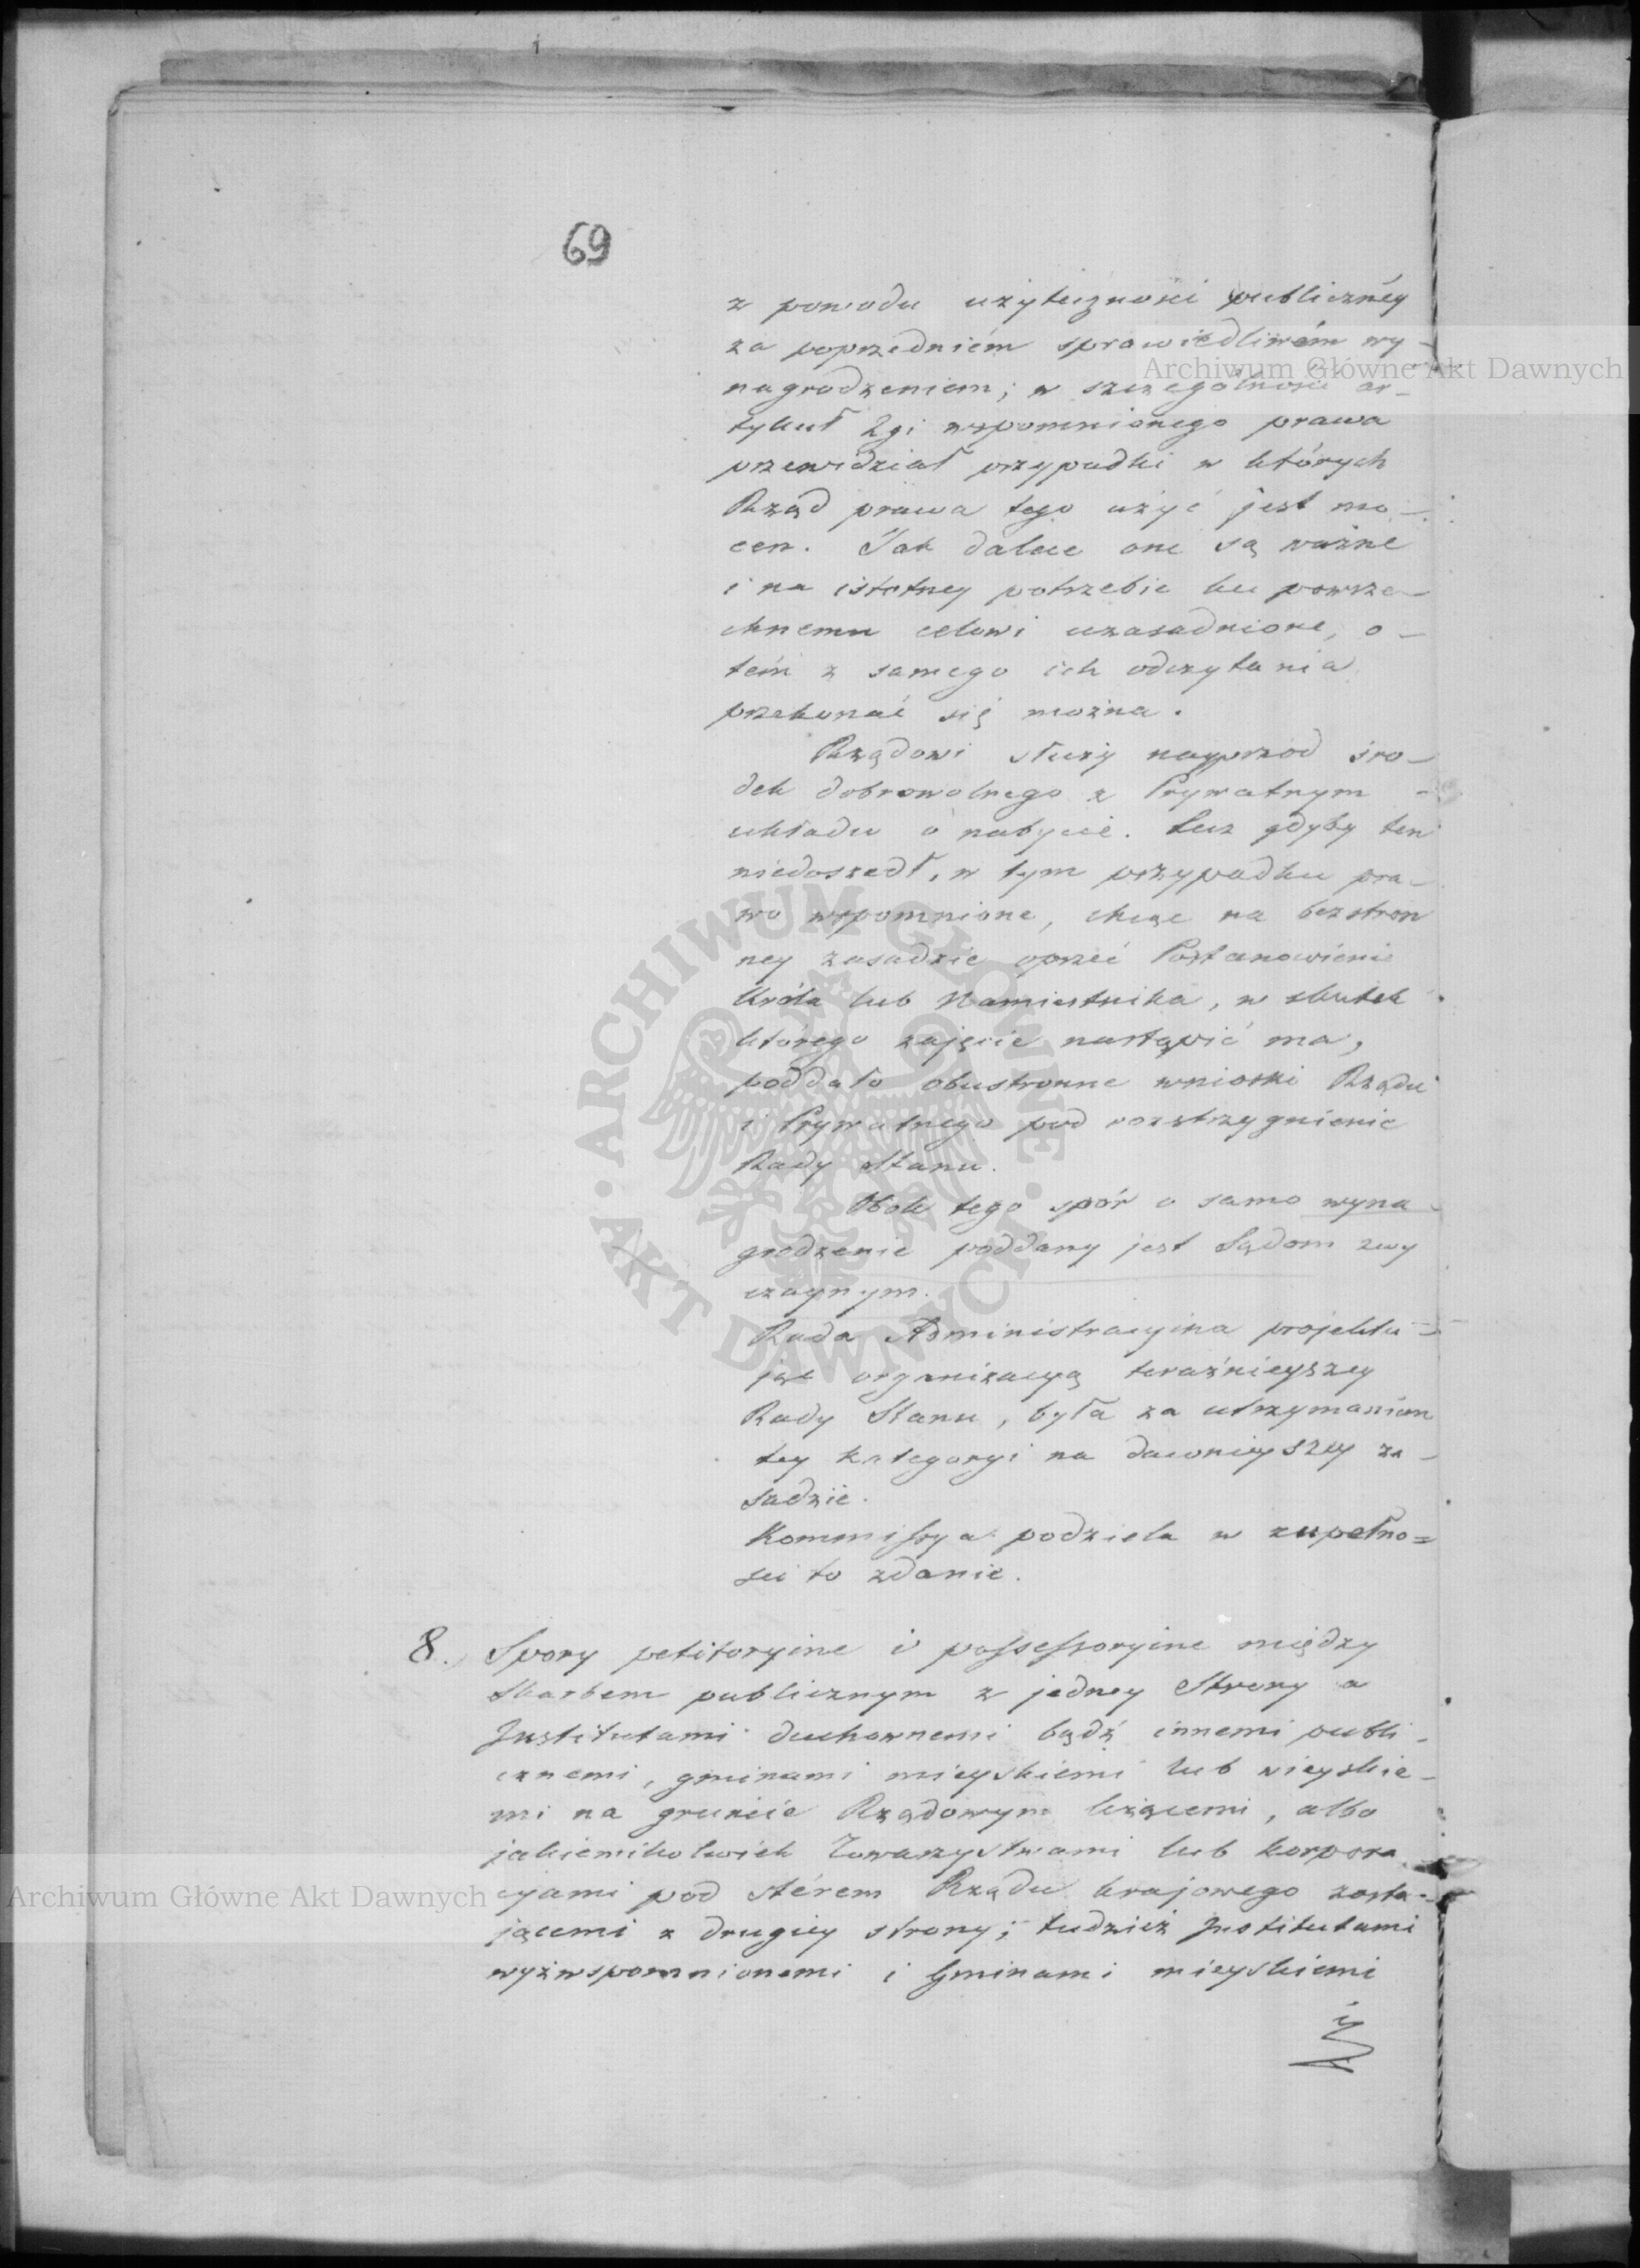 69
z powodu użyteczności publicznéy
za poprzedniém sprawiedliwém wy-
nagrodzeniem; w szczególności ar-
tykuł 2gi wspomnionego prawa
przewidział przypadki w których
Rząd prawa tego użyć jest mo-
cen. Jak dalece one są ważne
i na istotney potrzebie ku powsze-
chnemu celowi uzasadnione, o-
tém z samego ich odczytania
przekonać się można.
Rządowi służy nayprzód śro-
dek dobrowolnego z Prywatnym -
układu o nabycie. Lecz gdyby ten
niedoszedł, w tym przypadku pra-
wo wspomnione, chcąc na bezstron
ney zasadzie oprzeć Postanowienie
Króla lub Namiestnika, w skutek
którego zajęcie nastąpić ma,
poddało obustronne wnioski Rządu
i Prywatnego pod rozstrzygnienie
Rady Stanu.
Obok tego spór o samo wyna-
grodzenie poddany jest Sądom zwy
czaynym.
Rada Administracyina projektu-
jąc organizacyą teraźnieyszey
Rady Stanu, była za utrzymaniem
tey kategoryi na dawnieyszey za-
sadzie.
Kommissya podziela w zupełno=
ści to zdanie.
8. Spory petitoryine i possessoryine między
Skarbem publicznym z jedney Strony a
Institutami duchownemi bądź innemi publi-
cznemi, gminami mieyskiemi lub wieyskie-
mi na gruncie Rządowym leżącemi, albo
jakiemikolwiek Towarzystwami lub korpora
cyami pod stérem Rządu krajowego zosta-
jącemi z drugiey strony; tudzież Institutami
wyżwspomnionemi i Gminami mieyskiemi
Archiwum Główne Akt Dawnych
Archiwum Główne Akt Dawnych
ARCHIWUM GŁÓWNE · AKT DAWNYCH ·